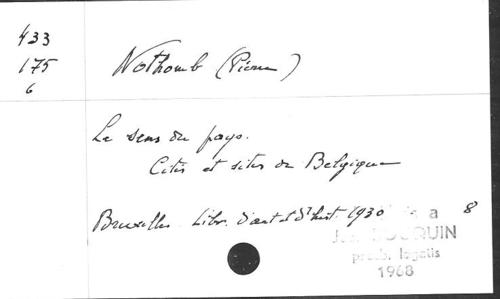 433
175
6
Nothomb (Pierre)
Le sens du pays.
Cités et sites de Belgique
Bruxelles. Libr. d'art et d'hist. 1930 8
a
QUIN
presb. legatis
1968